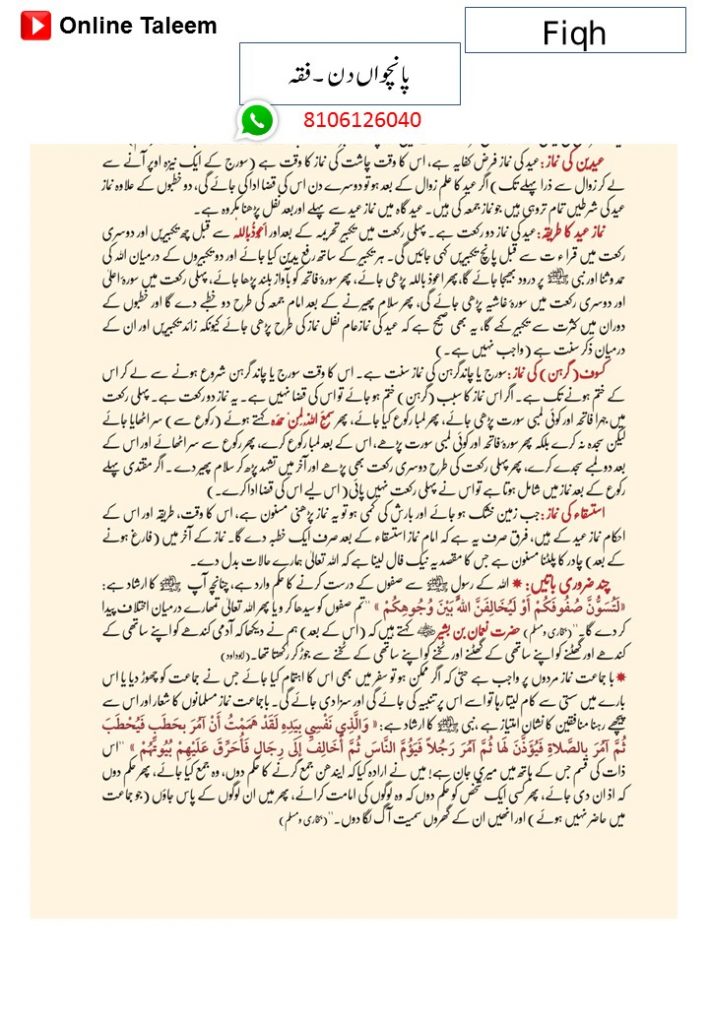 Online Taleem
Fiqh
پانچواں دن ۔ فقہ
8106126040
عیدین کی نماز: عید کی نماز فرض کفایہ ہے، اس کا وقت چاشت کی نماز کا وقت ہے (سورج کے ایک نیزہ اوپر آنے سے
لے کر زوال سے ذرا پہلے تک) اگر عید کا علم زوال کے بعد ہو تو دوسرے دن اس کی قضا ادا کی جائے گی، دو خطبوں کے علاوہ نماز
عید کی شرطیں تمام تر وہی ہیں جو نماز جمعہ کی ہیں۔ عید گاہ میں نماز عید سے پہلے اور بعد نفل پڑھنا مکروہ ہے۔
نماز عید کا طریقہ: عید کی نماز دو رکعت ہے۔ پہلی رکعت میں تکبیر تحریمہ کے بعد اور اعوذ باللہ سے قبل چھ تکبیریں اور دوسری
رکعت میں قراءت سے قبل پانچ تکبیریں کہی جائیں گی۔ ہر تکبیر کے ساتھ رفع یدین کیا جائے اور دو تکبیروں کے درمیان اللہ کی
حمد و ثنا اور نبی ﷺ پر درود بھیجا جائے گا، پھر اعوذ باللہ پڑھی جائے، پھر سورۂ فاتحہ کو بآواز بلند پڑھا جائے، پہلی رکعت میں سورۂ اعلیٰ
اور دوسری رکعت میں سورۂ غاشیہ پڑھی جائے گی، پھر سلام پھیرنے کے بعد امام جمعہ کی طرح دو خطبے دے گا اور خطبوں کے
دوران میں کثرت سے تکبیر کہے گا، یہ بھی صحیح ہے کہ عید کی نماز عام نفل نماز کی طرح پڑھی جائے کیونکہ زائد تکبیریں اور ان کے
درمیان ذکر سنت ہے (واجب نہیں ہے۔)
کسوف (گرہن) کی نماز: سورج یا چاند گرہن کی نماز سنت ہے۔ اس کا وقت سورج یا چاند گرہن شروع ہونے سے لے کر اس
کے ختم ہونے تک ہے۔ اگر اس نماز کا سبب (گرہن) ختم ہو جائے تو اس کی قضا نہیں ہے۔ یہ نماز دو رکعت ہے۔ پہلی رکعت
میں جہراً فاتحہ اور کوئی لمبی سورت پڑھی جائے، پھر لمبا رکوع کیا جائے، پھر سمع اللہ لمن حمدہ کہتے ہوئے (رکوع سے) سر اٹھایا جائے
لیکن سجدہ نہ کرے بلکہ پھر سورۂ فاتحہ اور کوئی لمبی سورت پڑھے، اس کے بعد لمبا رکوع کرے، پھر رکوع سے سر اٹھائے اور اس کے
بعد دو لمبے سجدے کرے، پھر پہلی رکعت کی طرح دوسری رکعت بھی پڑھے اور آخر میں تشہد پڑھ کر سلام پھیر دے۔ اگر مقتدی پہلے
رکوع کے بعد نماز میں شامل ہوتا ہے تو اس نے پہلی رکعت نہیں پائی (اس لیے اس کی قضا ادا کرے۔)
استسقاء کی نماز: جب زمین خشک ہو جائے اور بارش کی کمی ہو تو یہ نماز پڑھنی مسنون ہے، اس کا وقت، طریقہ اور اس کے
احکام نماز عید کے ہیں، فرق صرف یہ ہے کہ امام نماز استسقاء کے بعد صرف ایک خطبہ دے گا۔ نماز کے آخر میں (فارغ ہونے
کے بعد) چادر کا پلٹنا مسنون ہے جس کا مقصد یہ نیک فال لینا ہے کہ اللہ تعالیٰ ہمارے حالات بدل دے۔
چند ضروری باتیں: * اللہ کے رسول ﷺ سے صفوں کے درست کرنے کا حکم وارد ہے، چنانچہ آپ ﷺ کا ارشاد ہے:
«لَتُسَوُّنَّ صُفُوفَكُمْ أَوْ لَيُخَالِفَنَّ اللهُ بَيْنَ وُجُوهِكُمْ» "تم صفوں کو سیدھا کرو یا پھر اللہ تعالیٰ تمھارے درمیان اختلاف پیدا
کر دے گا۔" (بخاری و مسلم) حضرت نعمان بن بشیر رضی اللہ عنہ کہتے ہیں کہ (اس کے بعد) ہم نے دیکھا کہ آدمی کندھے کو اپنے ساتھی کے
کندھے اور گھٹنے کو اپنے ساتھی کے گھٹنے اور ٹخنے کو اپنے ساتھی کے ٹخنے سے جوڑ کر رکھتا تھا۔ (ابوداود)
* با جماعت نماز مردوں پر واجب ہے حتیٰ کہ اگر ممکن ہو تو سفر میں بھی اس کا اہتمام کیا جائے جس نے جماعت کو چھوڑ دیا یا اس
بارے میں سستی سے کام لیتا رہا تو اسے اس پر تنبیہ کی جائے گی اور سزا دی جائے گی۔ باجماعت نماز مسلمانوں کا شعار اور اس سے
پیچھے رہنا منافقین کا نشان امتیاز ہے، نبی ﷺ کا ارشاد ہے: «وَالَّذِي نَفْسِي بِيَدِهِ لَقَدْ هَمَمْتُ أَنْ آمُرَ بِحَطَبٍ فَيُحْطَبَ
ثُمَّ آمُرَ بِالصَّلَاةِ فَيُؤَذَّنَ لَهَا ثُمَّ آمُرَ رَجُلًا فَيَؤُمَّ النَّاسَ ثُمَّ أُخَالِفَ إِلَى رِجَالٍ فَأُحَرِّقَ عَلَيْهِمْ بُيُوتَهُمْ» "اس
ذات کی قسم جس کے ہاتھ میں میری جان ہے! میں نے ارادہ کیا کہ ایندھن جمع کرنے کا حکم دوں، وہ جمع کیا جائے، پھر حکم دوں
کہ اذان دی جائے، پھر کسی ایک شخص کو حکم دوں کہ وہ لوگوں کی امامت کرائے، پھر میں ان لوگوں کے پاس جاؤں (جو جماعت
میں حاضر نہیں ہوئے) اور انھیں ان کے گھروں سمیت آگ لگا دوں۔" (بخاری و مسلم)